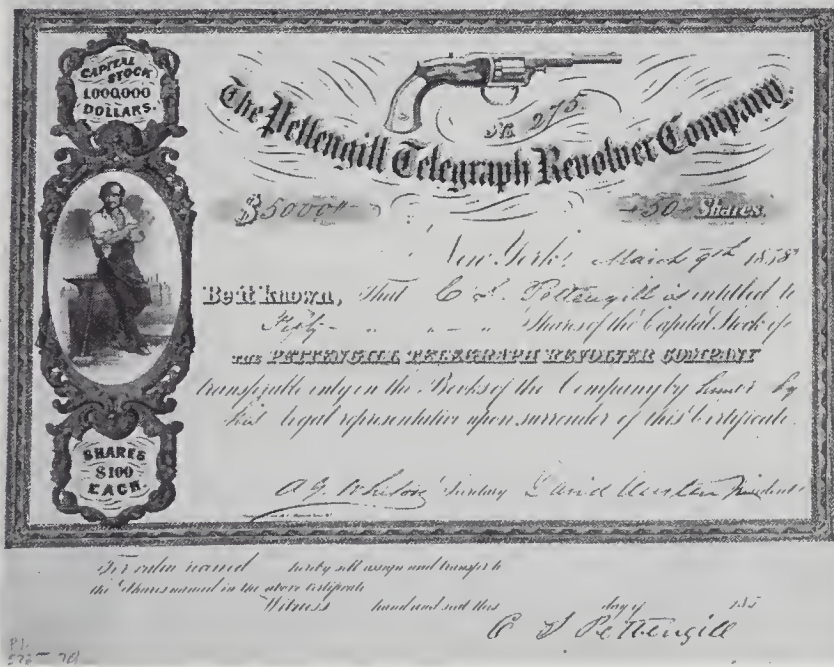 CAPITAL
STOCK
1,000,000
DOLLARS.
No. 275.
The Pettengill Telegraph Revolver Company.
$5000
50 Shares.
New York, March 9th 1858
Be it known, That C S Pettengill is entitled to
Fifty Shares of the Capital Stock of
THE PETTENGILL TELEGRAPH REVOLVER COMPANY
transferable only on the Books of the Company by him or by
his legal representative upon surrender of this Certificate.
SHARES
$100
EACH.
Secretary David Austen President
For value received hereby sell assign and transfer to
the Shares named in the above Certificate
Witness hand and seal this day of 185
C S Pettengill